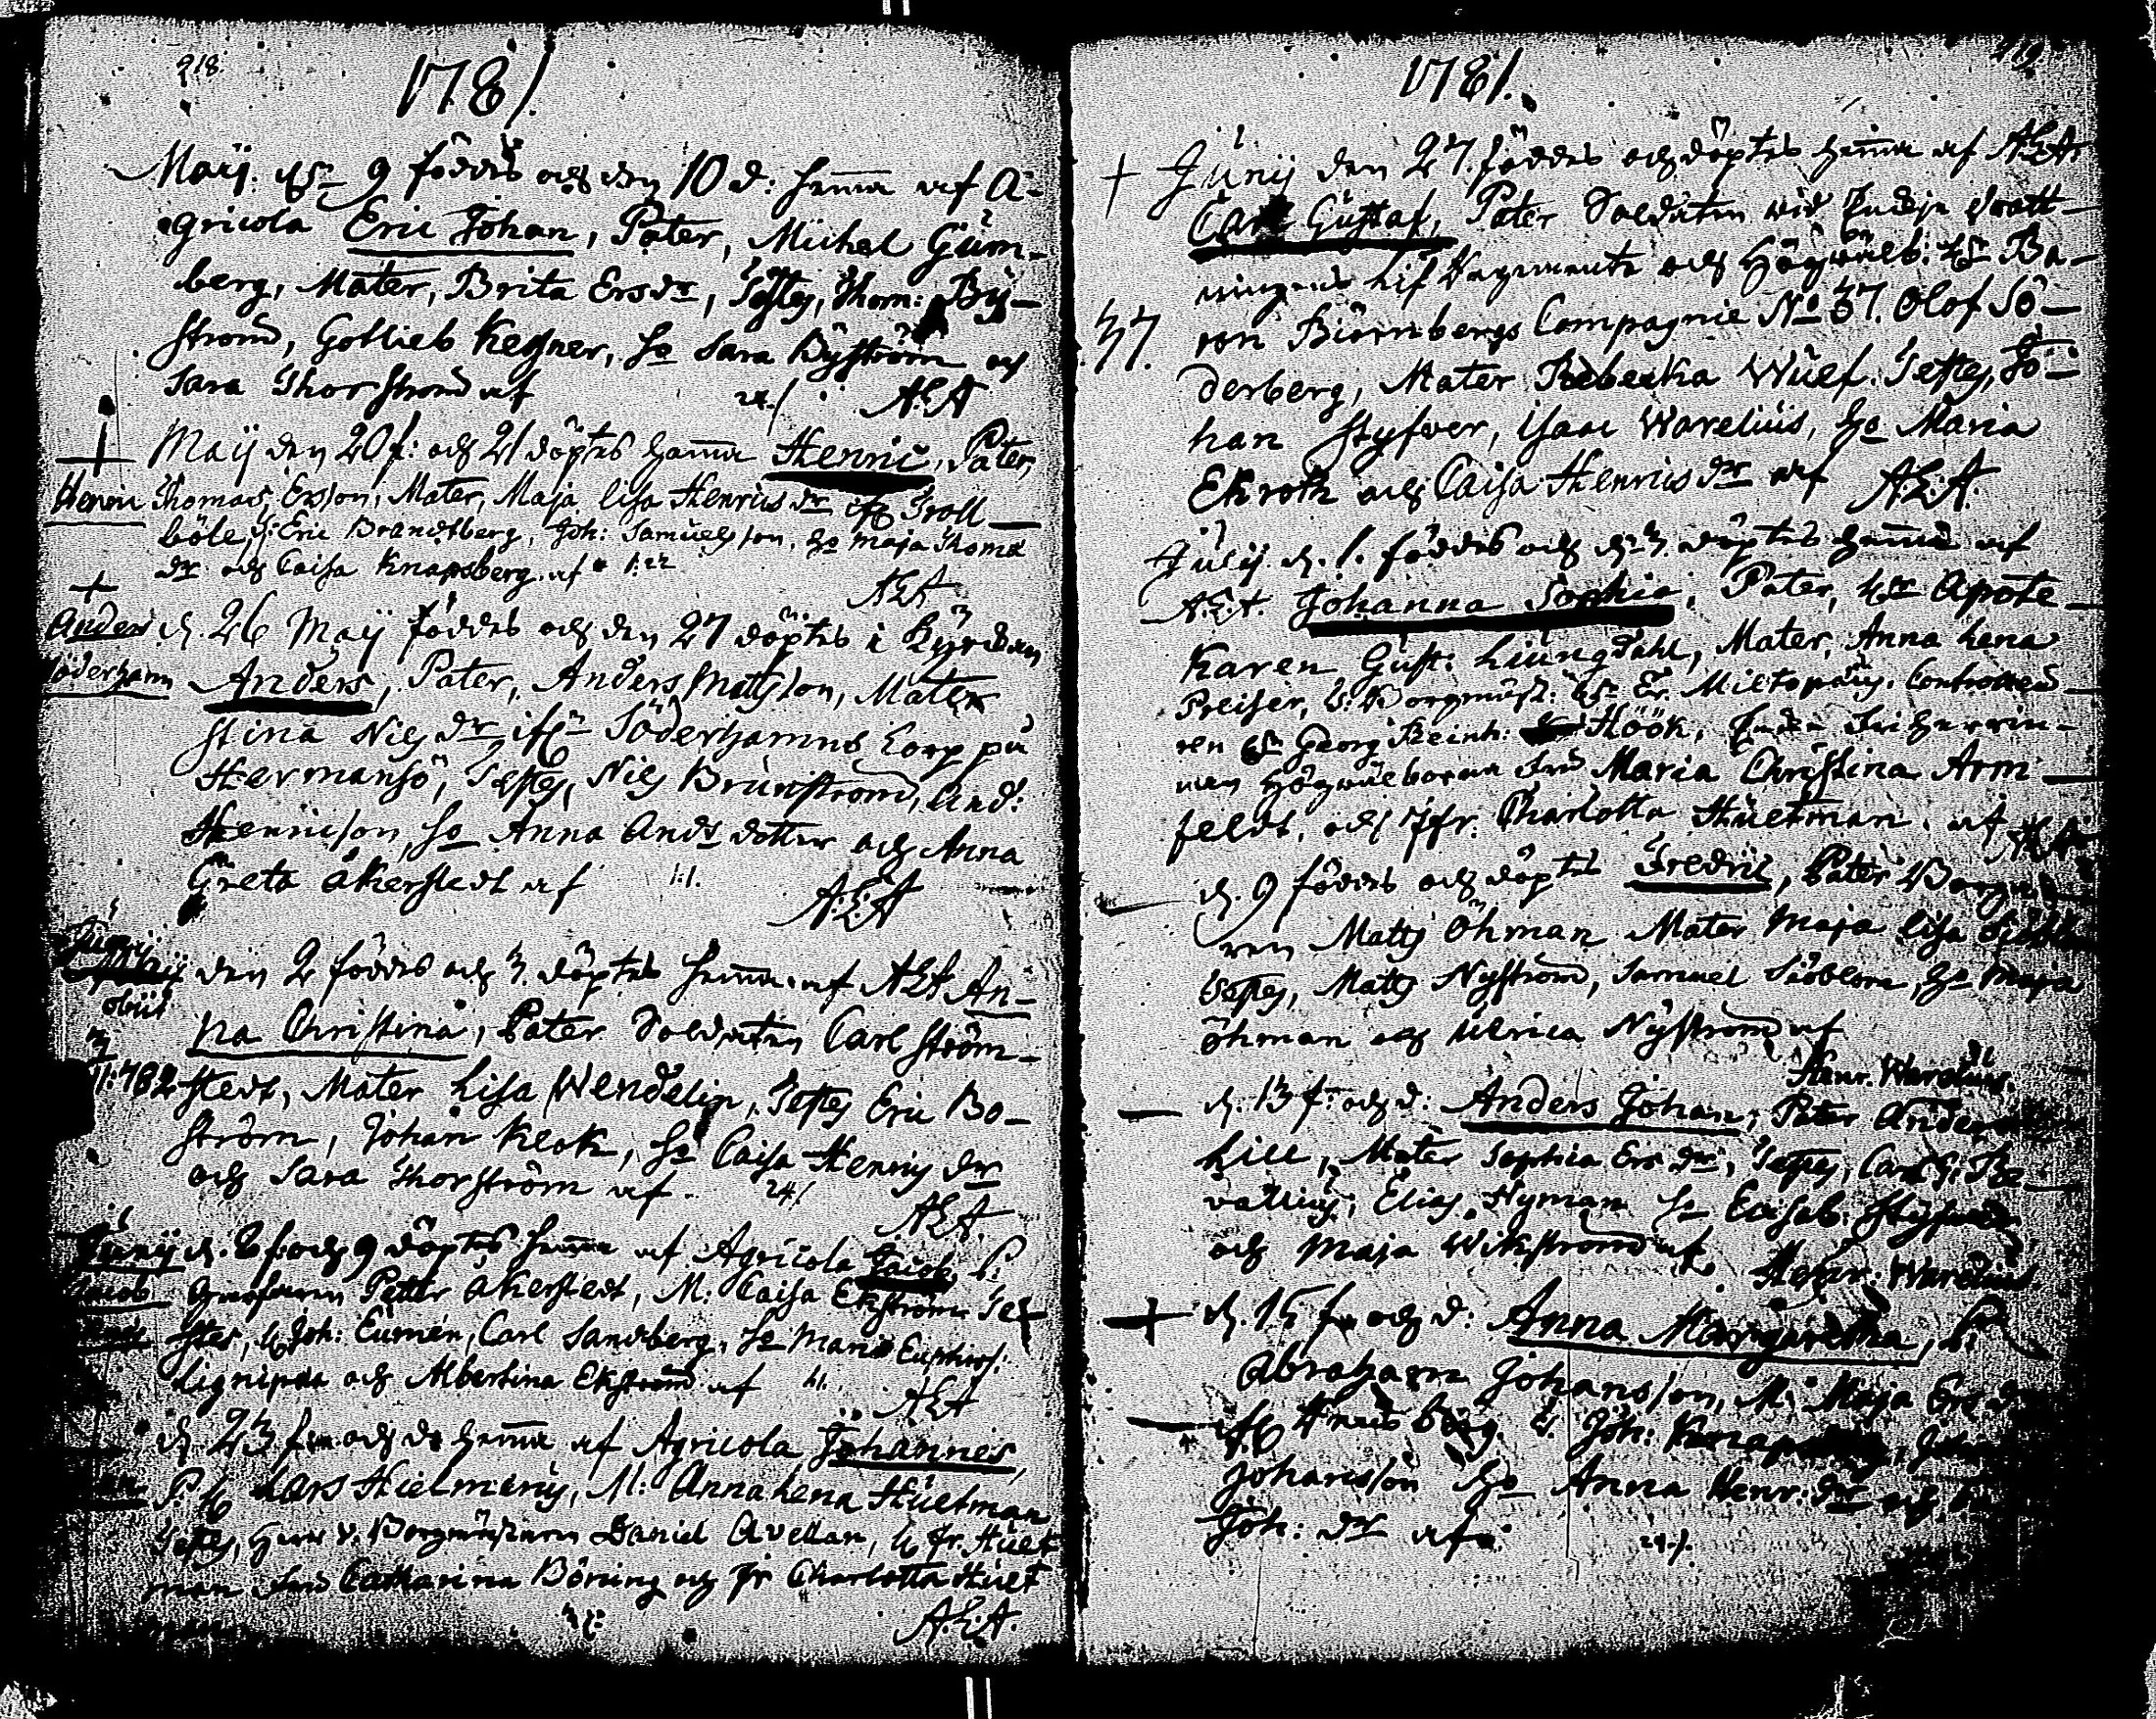 218.
1781.
Maij. dn 9 föddes och den 10 d: hemma af A-
gricola Eric Johan, Pater, Michel Güm-
berg, Mater, Brita Ersdr, Testes, Thom: By-
ström, Gotlieb Kegner, ho Sara Byström och
Sara Thorström af 24./. A.E.A
Maij den 20 f: och 21 döptes hemma Henric, Pater,
Henric Thomas Ersson, Mater, Maja Lisa Henricsdr ifr Troll-
böle, T: Eric Brandtberg, Joh: Samuelsson, ho Maja Thoma
dr och Caisa Knapsberg af 1:22
A.E.A
Anders d. 26 Maij föddes och den 27 döptes i Kyrckan
Söderhamn Anders, Pater, Anders Mattsson, Mater
Stina Nilsdr ifrn Söderhamns Torp på
Hermansö, Testes, Nils Brunström, And:
Henricson, ho Anna Andsdotter och Anna
Greta Åkerstedt af 1:1.
A.E.A
Junij den 2 föddes och 3 döptes hemma af A.E.A An-
obiit
na Christina, Pater Soldaten Carl Ström-
3/11:782 stedt, Mater Lisa Wendelin, Testes Eric Bo-
ström, Johan Klok, ho Caisa Henricsdr
och Sara Thorström af 24/.
A.E.A.
Junij d. 8 f. och 9 döptes hemma af Agricola Jacob, P:
Jacob Petter Åkerstedt, M: Caisa Ekström Te-
stes, h Joh: Eumén, Carl Sandberg, ho Maria
Lignipea och Albertina Ekström af 1/. A.E.A
d. 23 f. och d. hemma af Agricola Johannes,
P. h Lars Hielmerus, M: Anna Lena Hultman
Testes, Herr v. Borgmästaren Daniel Avellan, h fr. Hult
man Fru Catharina Böning och Jfr Charlotta Hult
man
A.E.A.
219.
1781.
Junij den 27. föddes och döptes hemma af A.E.A.
Carl Gustaf, Pater Soldaten vid Enckje Drott-
ningens Lif Regemente och Högwälb: Hr Ba-
37. ron Biörnbergs Compagnie No 37. Olof Sö-
derberg, Mater Rebecka Wulf. Testes, Jo-
han Styfver, Isaac Warelius, ho Maria
Ekroth och Caisa Henricsdr af A.E.A.
Julij d. 1. föddes och d. 3 döptes hemma af
A.E.A. Johanna Sophia, Pater, Hr Apote-
karen Gust: Liungdahl, Mater, Anna Lena
Preiser, T: Borgmäst: Hr Er. Miltopæus. Controlleu-
ren Hr Georg Reinh: Höök, Enke Friherrin-
nan Högwälborna Fru Maria Christina Arm-
feldt, och Jfr: Charlotta Hultman af A.E.A
d. 9 föddes och döptes Fredric, Pater Borga-
ren Matts Öhman Mater Maja Lisa
Testes, Matts Nyström, Samuel Siöblom, ho Maja
Öhman och Ulrica Nyström af
Henr. Warelius.
d. 13 f. och d: Anders Johan, Pater Anders
Lill, Mater Sophia Ersdr, Testes, Carl G: Be-
vallius, Elias Nyman ho Elisab: Styfver
och Maja Wikström af Henr: Warelius.
d. 15 f. och d: Anna Margaretha, P:
Abraham Johansson, M: Maja Ersdr
ifr T. Joh: Knapsberg, Joh
Johansson ho Anna Henr:dr och
Joh: dr af: 24./.